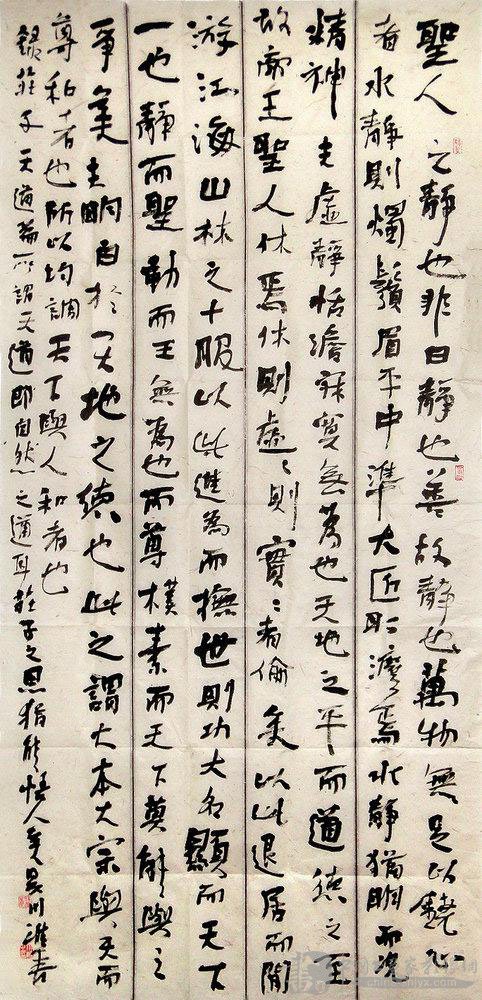 聖人之靜也非曰靜也善故靜也萬物無足以鐃心
者水靜則燭鬚眉平中準大匠取灋焉水靜猶明而況
精神夫虛靜恬澹寂寞無為也天地之平而道德之至
故帝王聖人休焉休則虛々則實々者倫矣以此退居而閒
游江海山林之士服以此進為而撫世則功大名顯而天下
一也靜而聖動而王無為也而尊樸素而天下莫能與之
爭美夫明白於天地之德也此之謂大本大宗與天而
尊和者也所以均調天下與人和者也
錄莊子天道篇所謂天道即自然之道耳莊子之思猶能悟人矣